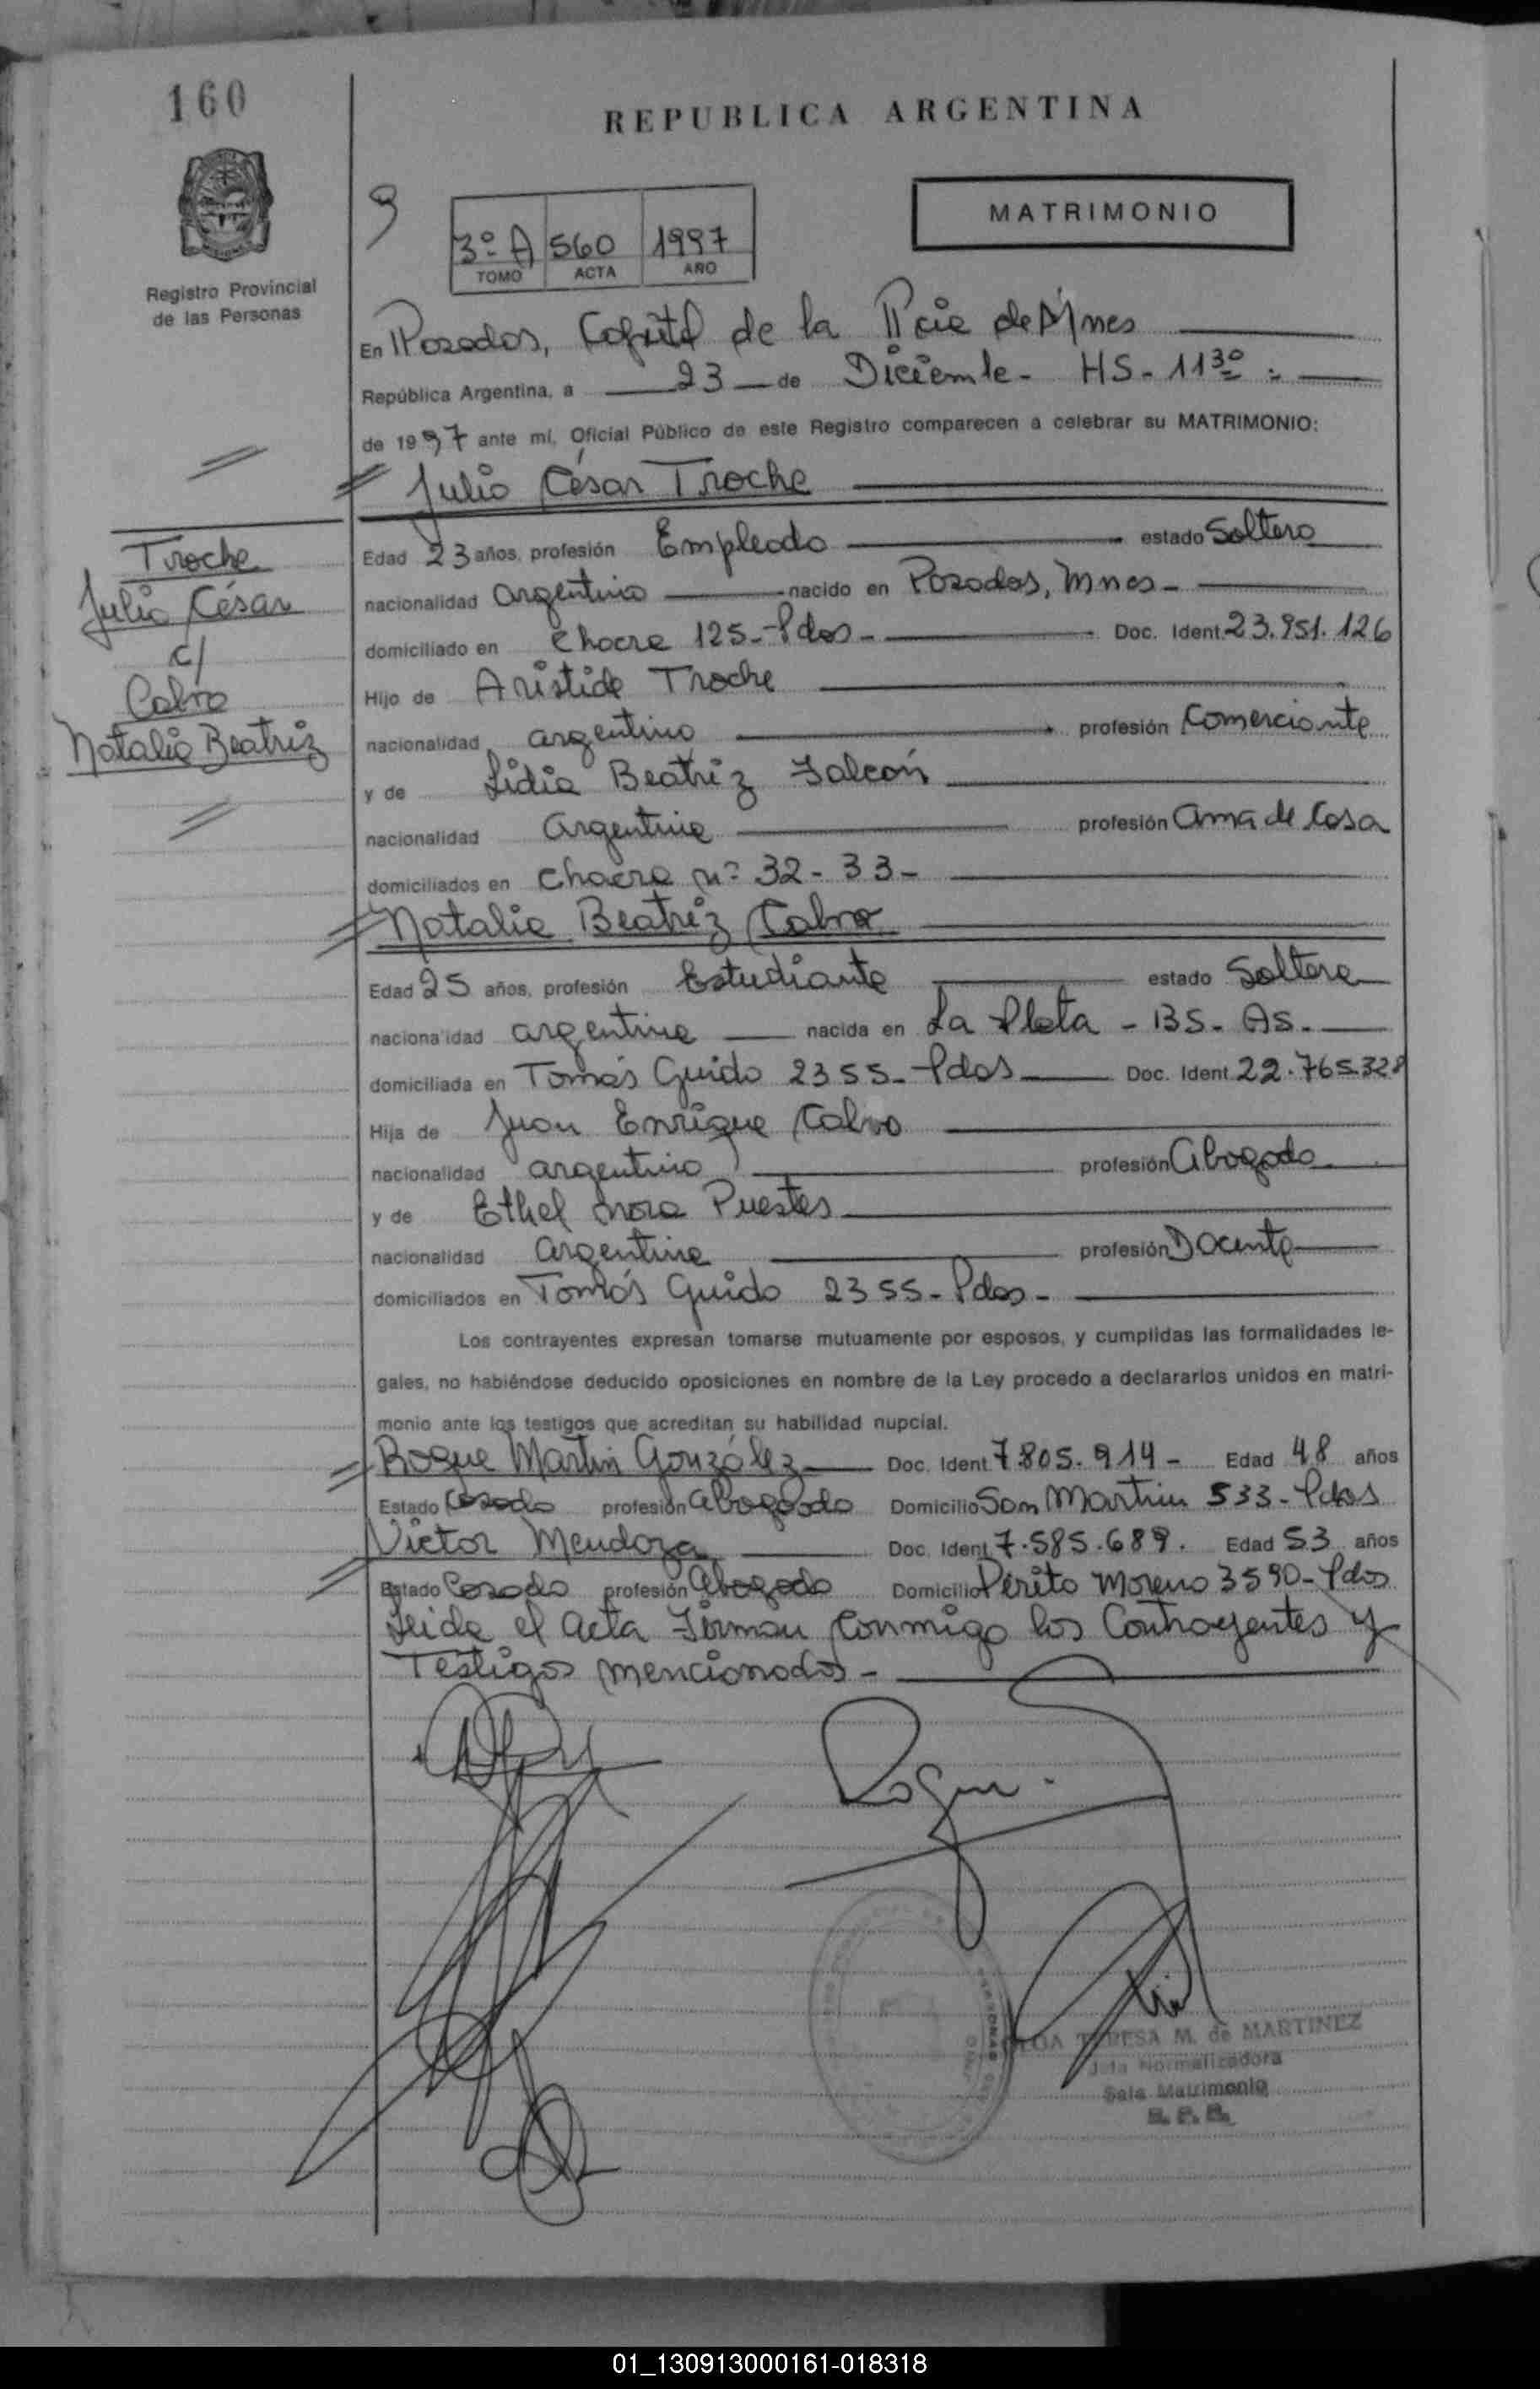 160
REPUBLICA ARGENTINA
MATRIMONIO
3º A 560 1997
TOMO ACTA AÑO
Registro Provincial
de las Personas
En Posadas, Capital de la Pcia de Mnes
República Argentina, a 23 de Diciembre - HS. 11 30
de 1997 ante mí, Oficial Público de este Registro comparecen a celebrar su MATRIMONIO:
Julio César Troche
Troche
Julio César
c/
Calvo
Natalia Beatriz
Edad 23 años, profesión Empleado estado Soltero
nacionalidad argentino nacido en Posadas, Mnes -
domiciliado en Chacra 125 - Pdas - Doc. Ident. 23.951.126
Hijo de Aristide Troche
nacionalidad argentino profesión Comerciante
y de Lidia Beatriz Falcón
nacionalidad Argentina profesión Ama de Casa
domiciliados en Chacra nº 32 - 33 -
Natalia Beatriz Calvo
Edad 25 años, profesión Estudiante estado Soltera
nacionalidad argentina nacida en La Plata - BS. AS.
domiciliada en Tomás Guido 2355 - Pdas Doc. Ident. 22.765.328
Hija de Juan Enrique Calvo
nacionalidad argentino profesión Abogado
y de Ethel Nora Puestes
nacionalidad Argentina profesión Docente
domiciliados en Tomás Guido 2355 - Pdas -
Los contrayentes expresan tomarse mutuamente por esposos, y cumplidas las formalidades le-
gales, no habiéndose deducido oposiciones en nombre de la Ley procedo a declararlos unidos en matri-
monio ante los testigos que acreditan su habilidad nupcial.
Roque Martin González Doc. Ident. 7.805.914 - Edad 48 años
Estado Casado profesión Abogado Domicilio San Martin 533 - Pdas
Victor Mendoza Doc. Ident. 7.585.689. Edad 53 años
Estado Casado profesión Abogado Domicilio Perito Moreno 3590 - Pdas
Leida el Acta Firman Conmigo los Contrayentes y
Testigos mencionados -
TERESA M. de MARTINEZ
Jefa Normalizadora
Sala Matrimonio
R. P. P.
01_130913000161-018318